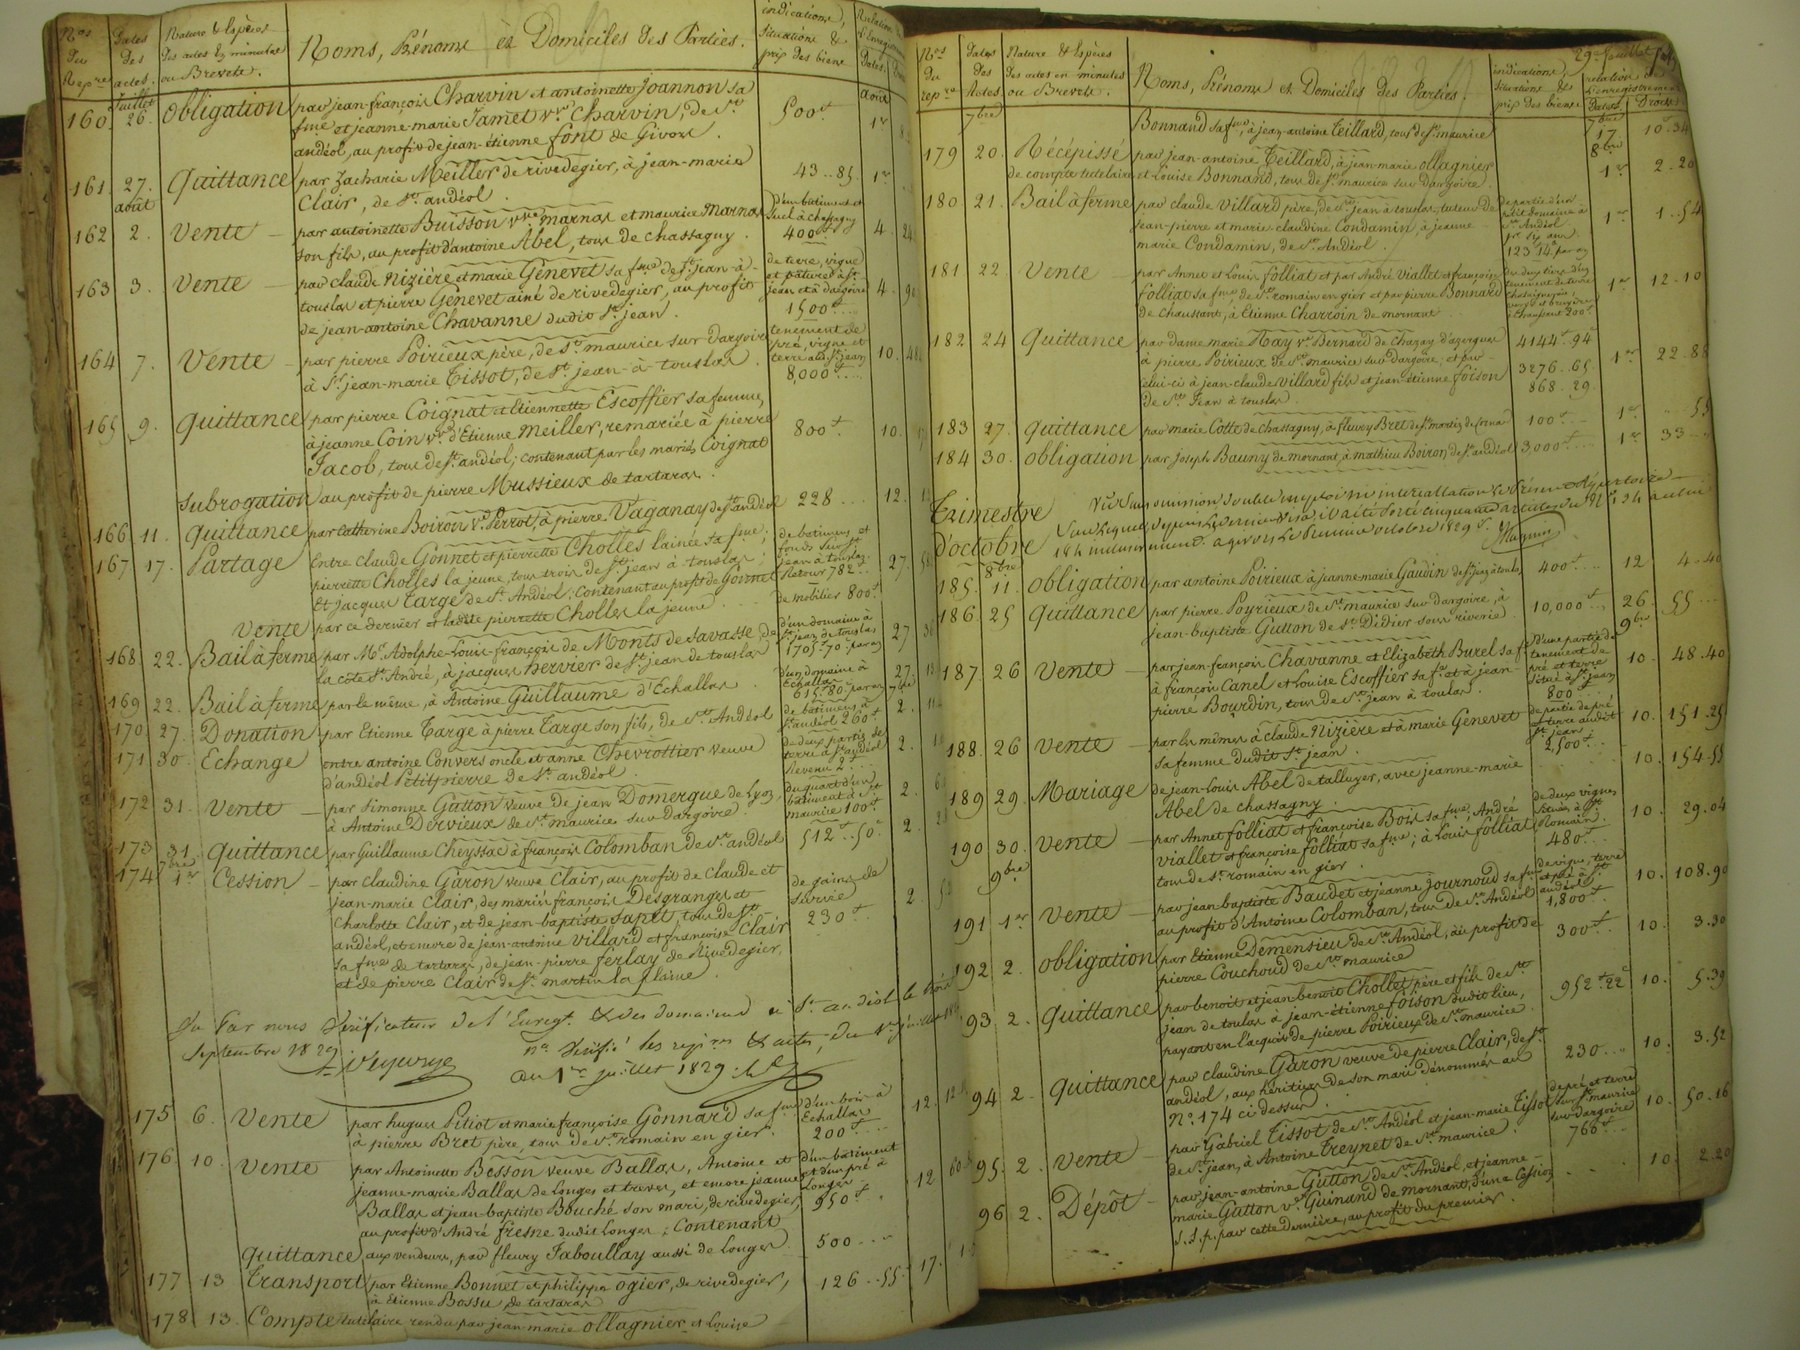 Nos du Repre
Dates des actes.
Nature & Espèces des actes en minutes ou Brevets.
Noms, Prénoms et Domiciles des Parties.
indications, situations & prix des biens
Juillet août
160. 26. Obligation par jean-françois Charvin et antoinette Joannon sa 500f 1er
fme et jeanne-marie Jamet vve Charvin, de St
andéol, au profit de jean-étienne font de Givors.
161 27. Quittance par Zacharie Meiller de rivedegier, à jean-marie 43..85. 1er
Clair, de St andéol.
août
162 2. Vente par antoinette Buisson vve marnas et maurice Marnas d'un bâtiment et
son fils, au profit d'antoine Abel, tous de chassagny. à chassagny 400f 4.
163 3. Vente par claude Nizière et marie Genevet sa fme de St jean-à- de terre, vigne
touslas et pierre Genevet ainé de rivedegier, au profit et pâture à St jean et à dargoire 4.
de jean-antoine Chavanne dudit St jean. 1500f
164 7. Vente par pierre Poirieux père, de St maurice sur dargoire tenement de pré, vigne et
à Sr jean-marie Tissot, de St jean-à-touslas. terre au St jean 8,000f 10.
165 9. Quittance par pierre Coignat et Etiennette Escoffier sa femme,
à jeanne Coin vve d'Etienne Meiller, remariée à pierre 800f 10.
Jacob, tous de St andéol; contenant par les mariés Coignat
Subrogation au profit de pierre Mussieux de tartaras.
166 11. Quittance par Catherine Boiron ve Perrot, à pierre Vaganay de St andéol 228 12.
167 17. Partage Entre claude Gonnet et pierrette Cholles lainée sa fme; de batimens et
pierrette Cholles la jeune, tous trois de St jean à touslas; fonds sur St jean à touslas
Et jacques Targe de St Andéol; Contenant au profit de Gonnet Retour 782 27.
Vente par ce dernier et ladite pierrette Cholles la jeune. de mobilier 800f
168 22. Bail à ferme par Mr Adolphe-Louis-françois de Monts de Savasse de d'un domaine à
la côte St André, à jacques hervier de St jean de touslas St jean de touslas 1705f70 par an 27
169 22. Bail à ferme par le même, à Antoine Guillaume d'Echallas d'un domaine à Echallas 615f80 par an 27.
170 27. Donation par Etienne Targe à pierre Targe son fils, de St Andéol de batimens à St andéol 260f 2.
171 30. Echange entre antoine Convers oncle et anne Chevrottier veuve de deux parties de
d'andéol Petitpierre de St andéol. terre à St andéol Revenu 2f 2.
172 31. Vente par Simonne Gatton veuve de jean Domergue de Lyon, du quart d'un
à Antoine Dervieux de St maurice sur Dargoire. bâtiment à St maurice 100f 2.
173 31. Quittance par Guillaume Cheyssac à françois Colomban de St andéol 512f..50c 2.
7bre
174 1er Cession par claudine Garon veuve Clair, au profit de claude et
jean-marie Clair, des mariés françois Desgranges et de gains de survie
Charlotte Clair, et de jean-baptiste Sapet, tous de St 230f 2.
andéol, et encore de jean-antoine Villard et françoise Clair
sa fme de tartaras, de jean-pierre ferlay de Rivedegier,
et de pierre Clair de St martin la plaine.
Vu Par nous Vérificateur de l'Enregt & des domaines à St andéol le trois
Septembre 1829
au 1er juillet 1829.
175 6. Vente par hugues Pitiot et marie françoise Gonnard sa fme d'un bois à Echallas
à pierre Bret père, tous de St romain en gier. 200f 12.
176 10. Vente par Antoinette Besson veuve Ballas, Antoine et d'un bâtiment
jeanne-marie Ballas de Longes et treves, et encore jeanne et d'un pré à Longes
Ballas et jean-baptiste Bouché son mari, de rivedegier, 950f 12
au profit d'André fresne dudit Longes; Contenant
Quittance aux vendeurs, par fleury Jaboullay aussi de Longes 500
177 13 Transport par Etienne Bonnet et philippe Ogier, de rivedegier, 126..55. 17.
à Etienne Bossu de tartaras
178 13. Compte tutélaire rendu par jean-marie Ollagnier et Louise
29e
Nos du repre
Dates des Actes
Nature & Espèces des actes en minutes ou Brevets.
Noms, Prénoms et Domiciles des Parties.
indications, situations & prix des biens
relation de l'enregistrement
Dates Droits
7bre 7bre
Bonnand sa fme, à jean-antoine Teillard, tous de St maurice 17. 10.34
8bre
179 20. Récépissé par jean-antoine Teillard, à jean-marie Ollagnier 1er 2.20
de compte tutelaire et Louise Bonnand, tous de St maurice sur dargoire.
180 21. Bail à ferme par claude Villard père, de St jean à touslas, tuteur de de partie d'un
jean-pierre et marie claudine Condamin, à jeanne- petit domaine à St Andéol 1er 1..54
marie Condamin, de St Andéol. 123f14 par an
181 22. Vente par Annet et Louis folliat et par André Viallet et françoise
folliat sa fme de St romain en gier et par pierre Bonnard 1er 12.10
de chaussans, à Etienne Charroin de mornant à chaussans 200f
182 24 Quittance par dame marie Hay ve Bernard de Chazay d'azergue 4144f.94c
à pierre Poirieux de St maurice sur Dargoire, et par 3276..65 1er 22.88
celui-ci à jean-claude Villard fils et jean-étienne foison 868.29
de St Jean à touslas.
183 27. Quittance par marie Cotte de chassagny, à fleury Bret de St martin de Cornas 100f 1er 55
184 30. Obligation par Joseph Bauny de mornant, à mathieu Boiron de St andéol 3,000f 1er 33
Trimestre d'octobre
Vu Sans omission double emploi ni intercallation le Présent Répertoire
184 inclusivement. à givors Le Premier octobre 1829
8bre
185. 11. Obligation par antoine Poirieux à jeanne-marie Gaudin de St jean à touslas, 400f 12 4.40
186 25 Quittance par pierre Poyrieux de St maurice sur dargoire, à 10,000f 26. 55
jean-baptiste Gutton de St Didier sous riverie. 9bre
187. 26 Vente par jean-françois Chavanne et Elizabeth Burel sa fe d'une partie de
à françois Canel et Louise Escoffier sa fe et à jean- tenement de pré et terre 10. 48.40
pierre Bourdin, tous de St jean à touslas. situé à St jean 800f
188. 26 Vente par les mêmes à claude Nizière et à marie Genevet de partie de pré
sa femme dudit St jean. et terre audit St jean 2,500f 10. 151.25
189 29. Mariage de jean-Louis Abel de talluyer, avec jeanne-marie 10. 154.55
Abel de chassagny.
190 30. Vente par Annet folliat et françoise Bois sa fme, André de deux vignes
Viallet et françoise folliat sa fme, à Louis folliat, situées à St Romain. 10. 29.04
tous de St romain en gier. 480f
9bre
191 1er Vente par jean baptiste Baudet et jeanne Journoud sa fme de vigne, terre
au profit d'Antoine Colomban, tous de St Andéol et pré à St andéol 1,800f 10. 108.90
192 2. Obligation par Etienne Demensieu de St Andéol, au profit de 300f 10. 3.30
pierre Couchoud de St maurice
93 2. Quittance par benoit et jean benoit Chollet père et fils de St 952f22c 10. 5.39
jean de touslas à jean-étienne foison dudit lieu,
payant en l'acquit de pierre Poirieux de St maurice.
94 2. Quittance par claudine Garon veuve de pierre Clair, de St 230 10. 3.52
andéol, aux héritiers de son mari dénommés au
No 174 ci dessus.
95. 2. Vente par Gabriel Tissot de St Andéol et jean-marie Tissot de pré et terre
de St jean, à Antoine Treynet de St maurice. sur St maurice sur dargoire 760f 10. 50.16
96 2. Dépôt par jean-antoine Gutton de St Andéol, et jeanne- 10. 2.20
marie Gutton ve Guinand de mornant, d'une Cession
s.s.p. par cette dernière, au profit du premier.